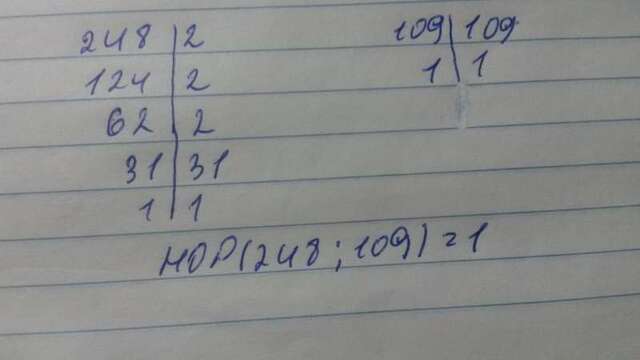 248 | 2
124 | 2
62 | 2
31 | 31
1 | 1
109 | 109
1 | 1
НОД(248;109)=1